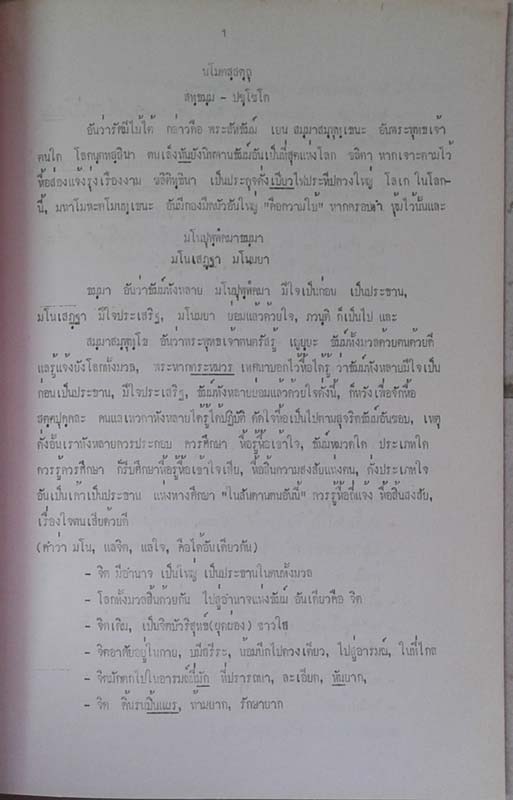 1
นโมตสฺสตฺถุ
สทฺธมฺม - ปชฺโชโต
อันว่ารัศมีไม้ไต้ กล่าวคือ พระสัทธัมม์ เยน สมฺมาสมฺพุทฺเธนะ อันพระพุทธเจ้า
ตนใด โลกนฺตทสฺสินา ตนเล็งหันยังนิพพานธัมม์อันเป็นที่สุดแห่งโลก ชลิตา หากเจาะตามไว้
หื้อส่องแจ้งรุ่งเรืองงาม เป็นประดุจดั่งเปียวไฟประทีปดวงใหญ่ โลเก ในโลก-
นี้, มหาโมหะตโมนทฺเธนะ อันมืดมัวอันใหญ่ "คือความใบ้" หากครอบงำ หุ้มไว้นั้นและ
มโนปุพฺพํคมาธมฺมา
มโนเสฏฺฐา มโนมยา
ธมฺมา อันว่าธัมม์ทังหลาย มโนปุพฺพํคมา มีใจเป็นก่อน เป็นประธาน,
มโนเสฏฺฐา มีใจประเสริฐ, มโนมยา ย่อมแล้วด้วยใจ, ภวนฺติ ก็เป็นไป และ
สมฺมาสมฺพุทฺโธ อันว่าพระพุทธเจ้าตนตรัสรู้ เญยฺยะ ธัมม์ทังมวลด้วยตนด้วยดี
และรู้แจ้งยังโลกทังมวล, พระหากกระหมวร เทศนาบอกไว้หื้อได้รู้ ว่าธัมม์ทังหลายมีใจเป็น
ก่อนเป็นประธาน, มีใจประเสริฐ, ธัมม์ทังหลายย่อมแล้วด้วยใจดั่งนี้, ก็หวังเพื่อจักหื้อ
สตฺตปุคฺคละ คนและเทวดาทังหลายได้รู้ได้ปฏิบัติ ดัดใจหื้อเป็นไปตามสุจริตธัมม์อันชอบ, เหตุ
ดั่งอั้นเราทังหลายควรประกอบ ควรศึกษา หื้อรู้หื้อเข้าใจ, ธัมม์หมวดใด ประเภทใด
ควรรู้ควรศึกษา ก็รีบศึกษาหื้อรู้หื้อเข้าใจเสีย, หื้อสิ้นความสงสัยแห่งตน, ดั่งประเภทใจ
อันเป็นเค้าเป็นประธาน แห่งทางศึกษา "ในสันดานตนอันนี้" ควรรู้หื้อถี่แจ้ง หื้อสิ้นสงสัย,
เรื่องใจตนเสียด้วยดี
(คำว่า มโน, และจิต, และใจ, คือได้อันเดียวกัน)
- จิต มีอำนาจ เป็นใหญ่ เป็นประธานในตนทังมวล
- โลกทังมวลสิ้นด้วยกัน ไปสู่อำนาจแห่งธัมม์ อันเดียวคือ จิต
- จิตเดิม, เป็นจิตบัวริสุทธ์(ยุดย่อง) ขาวใส
- จิตอาศัยอยู่ในกาย, บมีสรีระ, น้อมนึกไปดวงเดียว, ไปสู่อารมณ์, ในที่ไกล
- จิตมักตกไปในอารมณ์ที่มัก ที่ปรารถนา, ละเอียด, หันยาก,
- จิต ดิ้นรนปิ้นแผว, ห้ามยาก, รักษายาก